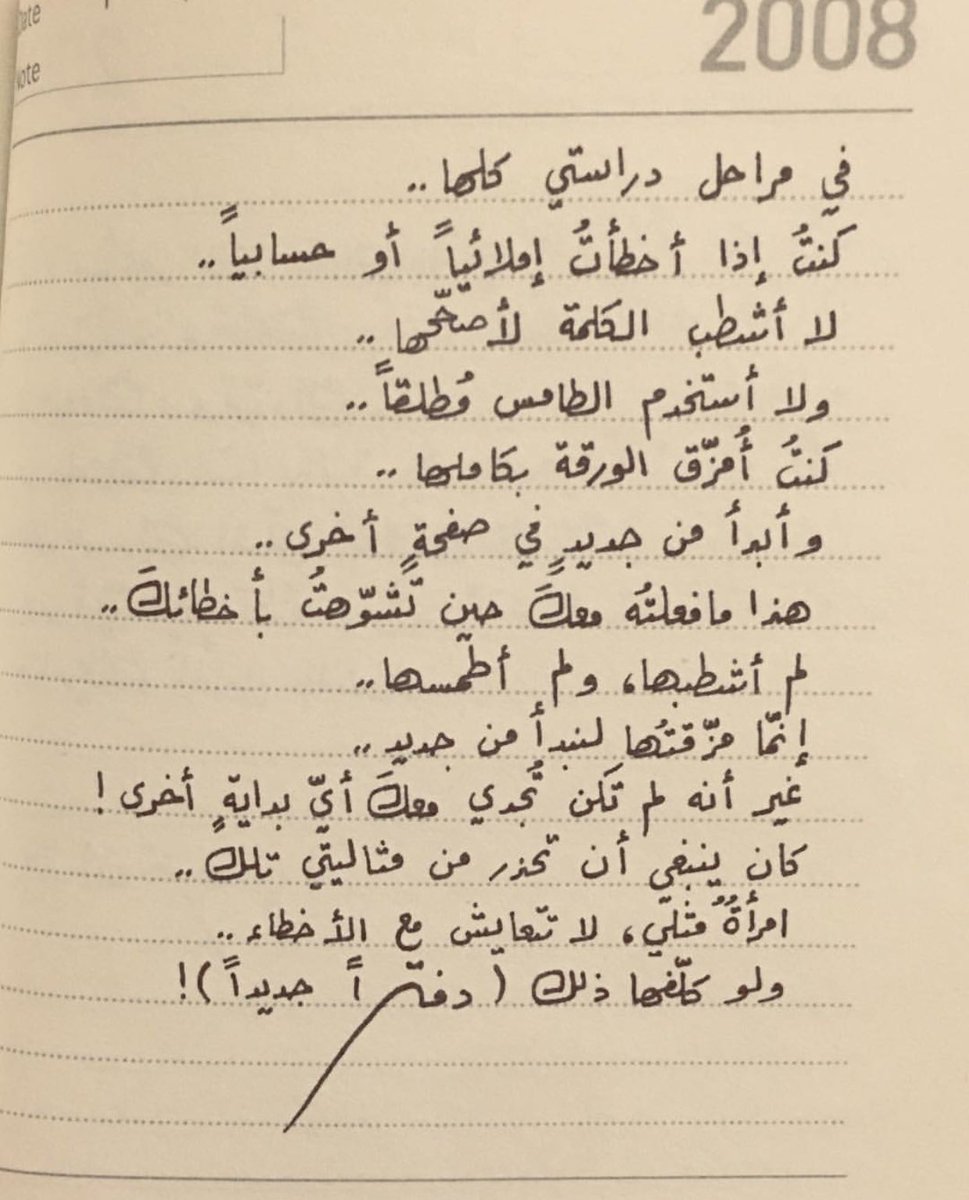 Date
Note
2008
في مراحل دراستي كلها..
كنتُ إذا أخطأتُ إملائياً أو حسابياً..
لا أشطب الكلمة لأصحّحها..
ولا أستخدم الطامس مُطلقاً..
كنتُ أُمزّق الورقة بكاملها..
وأبدأ من جديدٍ في صفحةٍ أخرى..
هذا مافعلتُه معكَ حين تشوّهتُ بأخطائكَ..
لم أشطبها، ولم أطمسها..
إنمّا مزّقتُها لنبدأ من جديدٍ..
غير أنه لم تكن تُجدي معكَ أيّ بدايةٍ أخرى!
كان ينبغي أن تحذر من مثاليتي تلك..
امرأةٌ مثلي، لا تتعايش مع الأخطاء..
ولو كلّفها ذلك (دفتراً جديداً)!